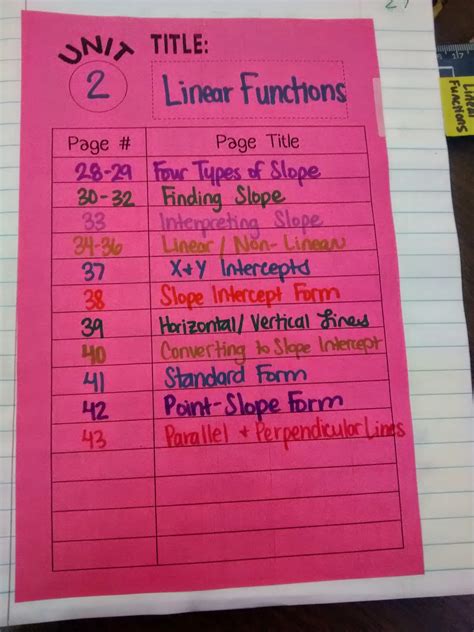 UNIT TITLE:
2 Linear Functions
Page # Page Title
28-29 Four Types of Slope
30-32 Finding Slope
33 Interpreting Slope
34-36 Linear / Non-Linear
37 X+Y Intercepts
38 Slope Intercept Form
39 Horizontal/Vertical Lines
40 Converting to Slope Intercept
41 Standard Form
42 Point-Slope Form
43 Parallel + Perpendicular Lines
Linear
Functions